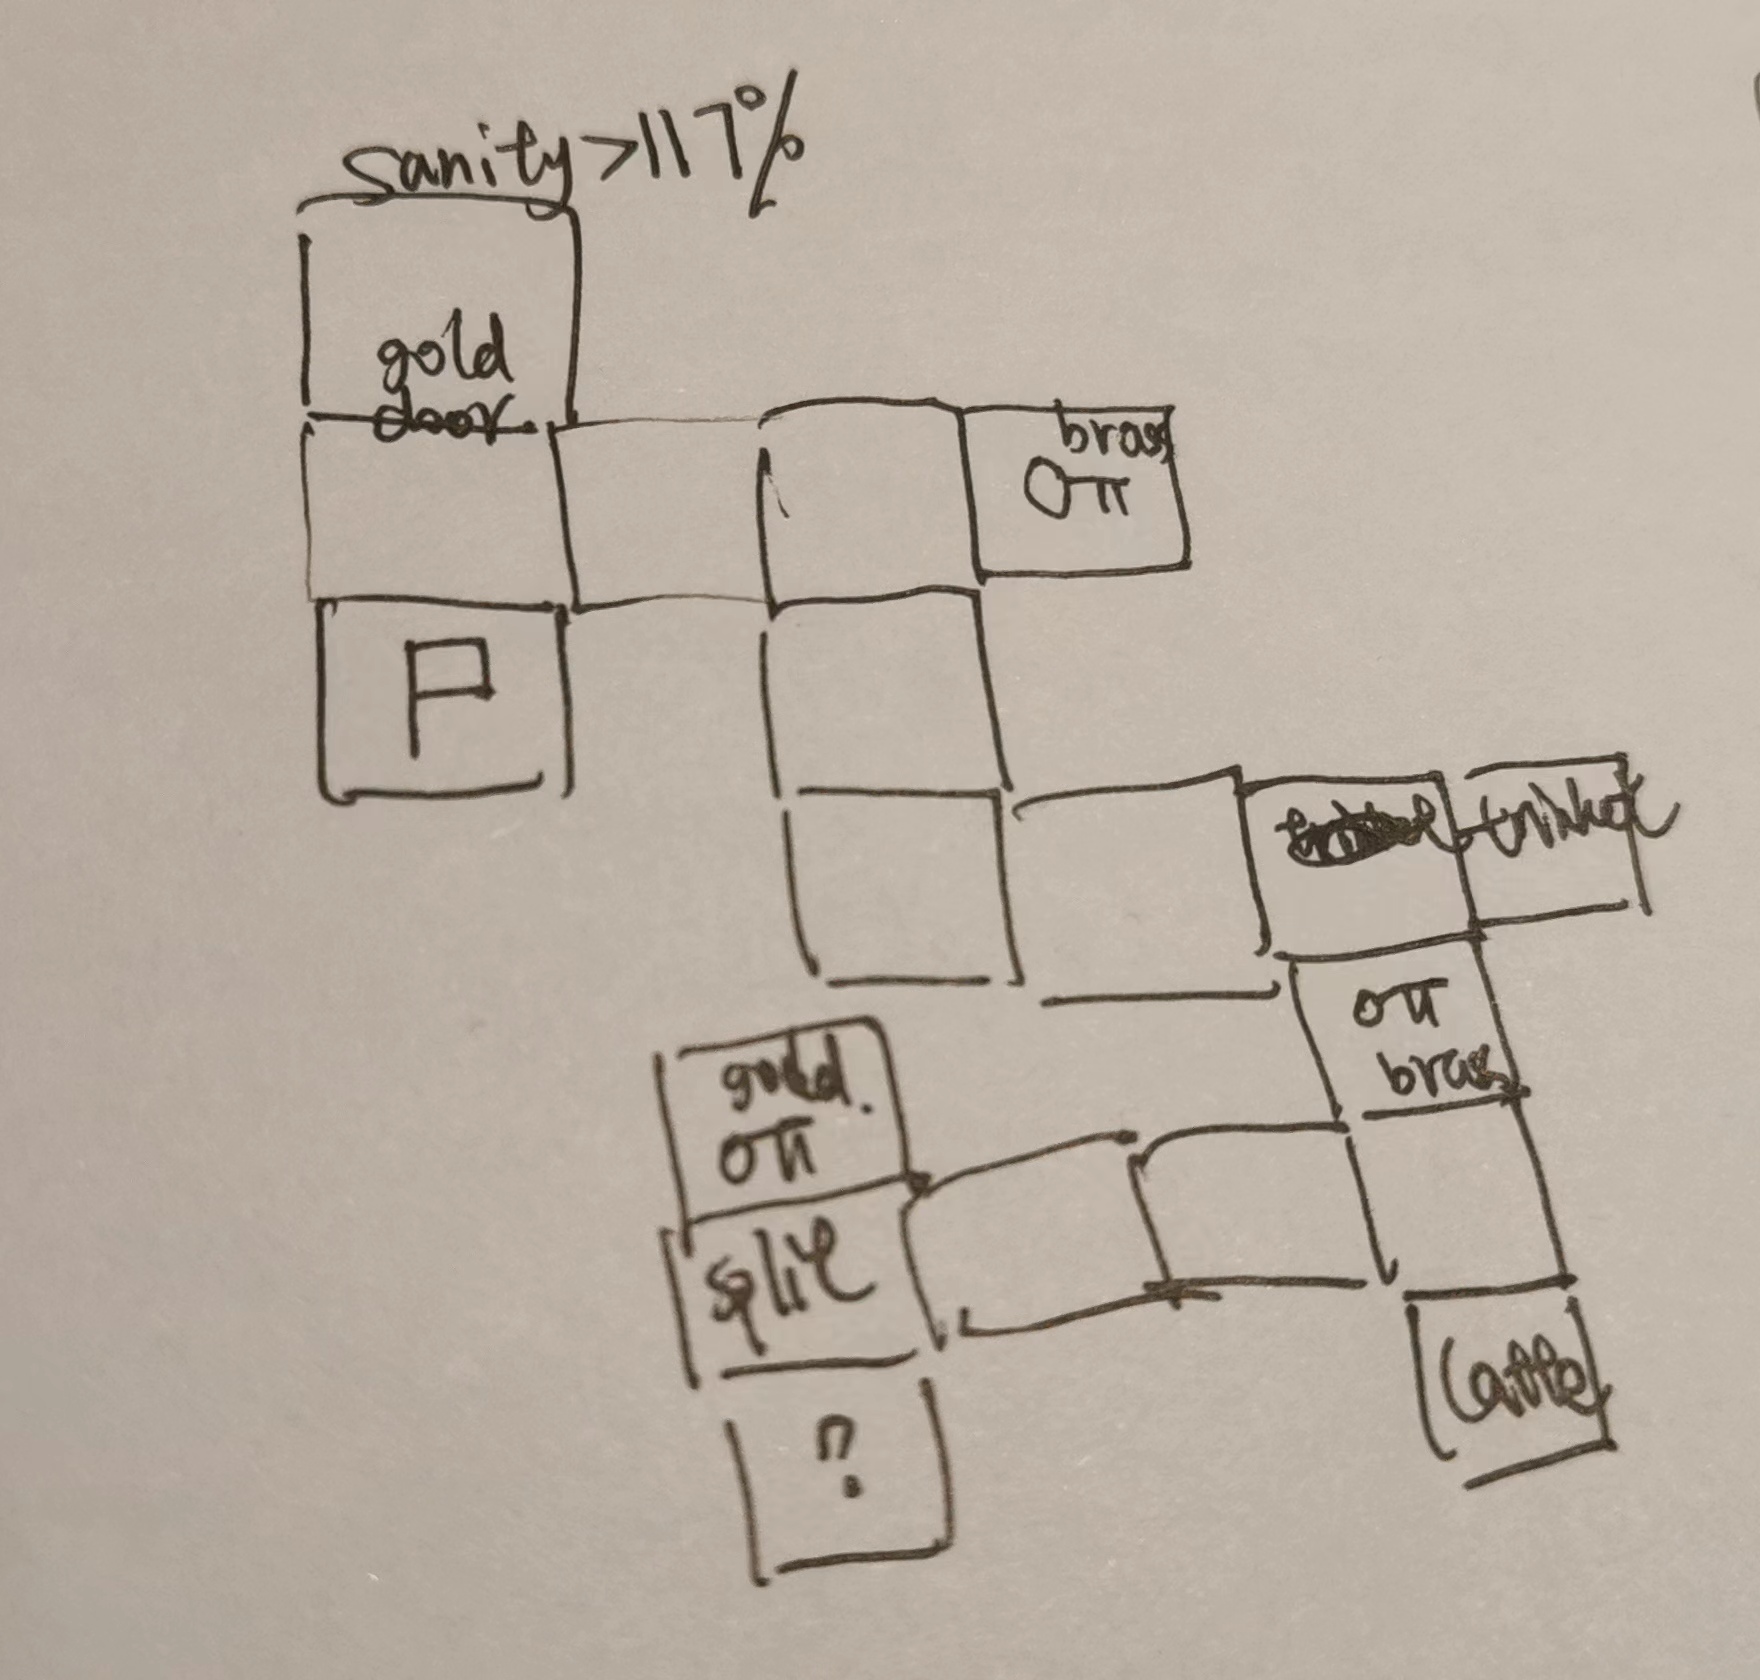 sanity >117%
gold
door
brass
P
trinket
brass
gold.
split
?